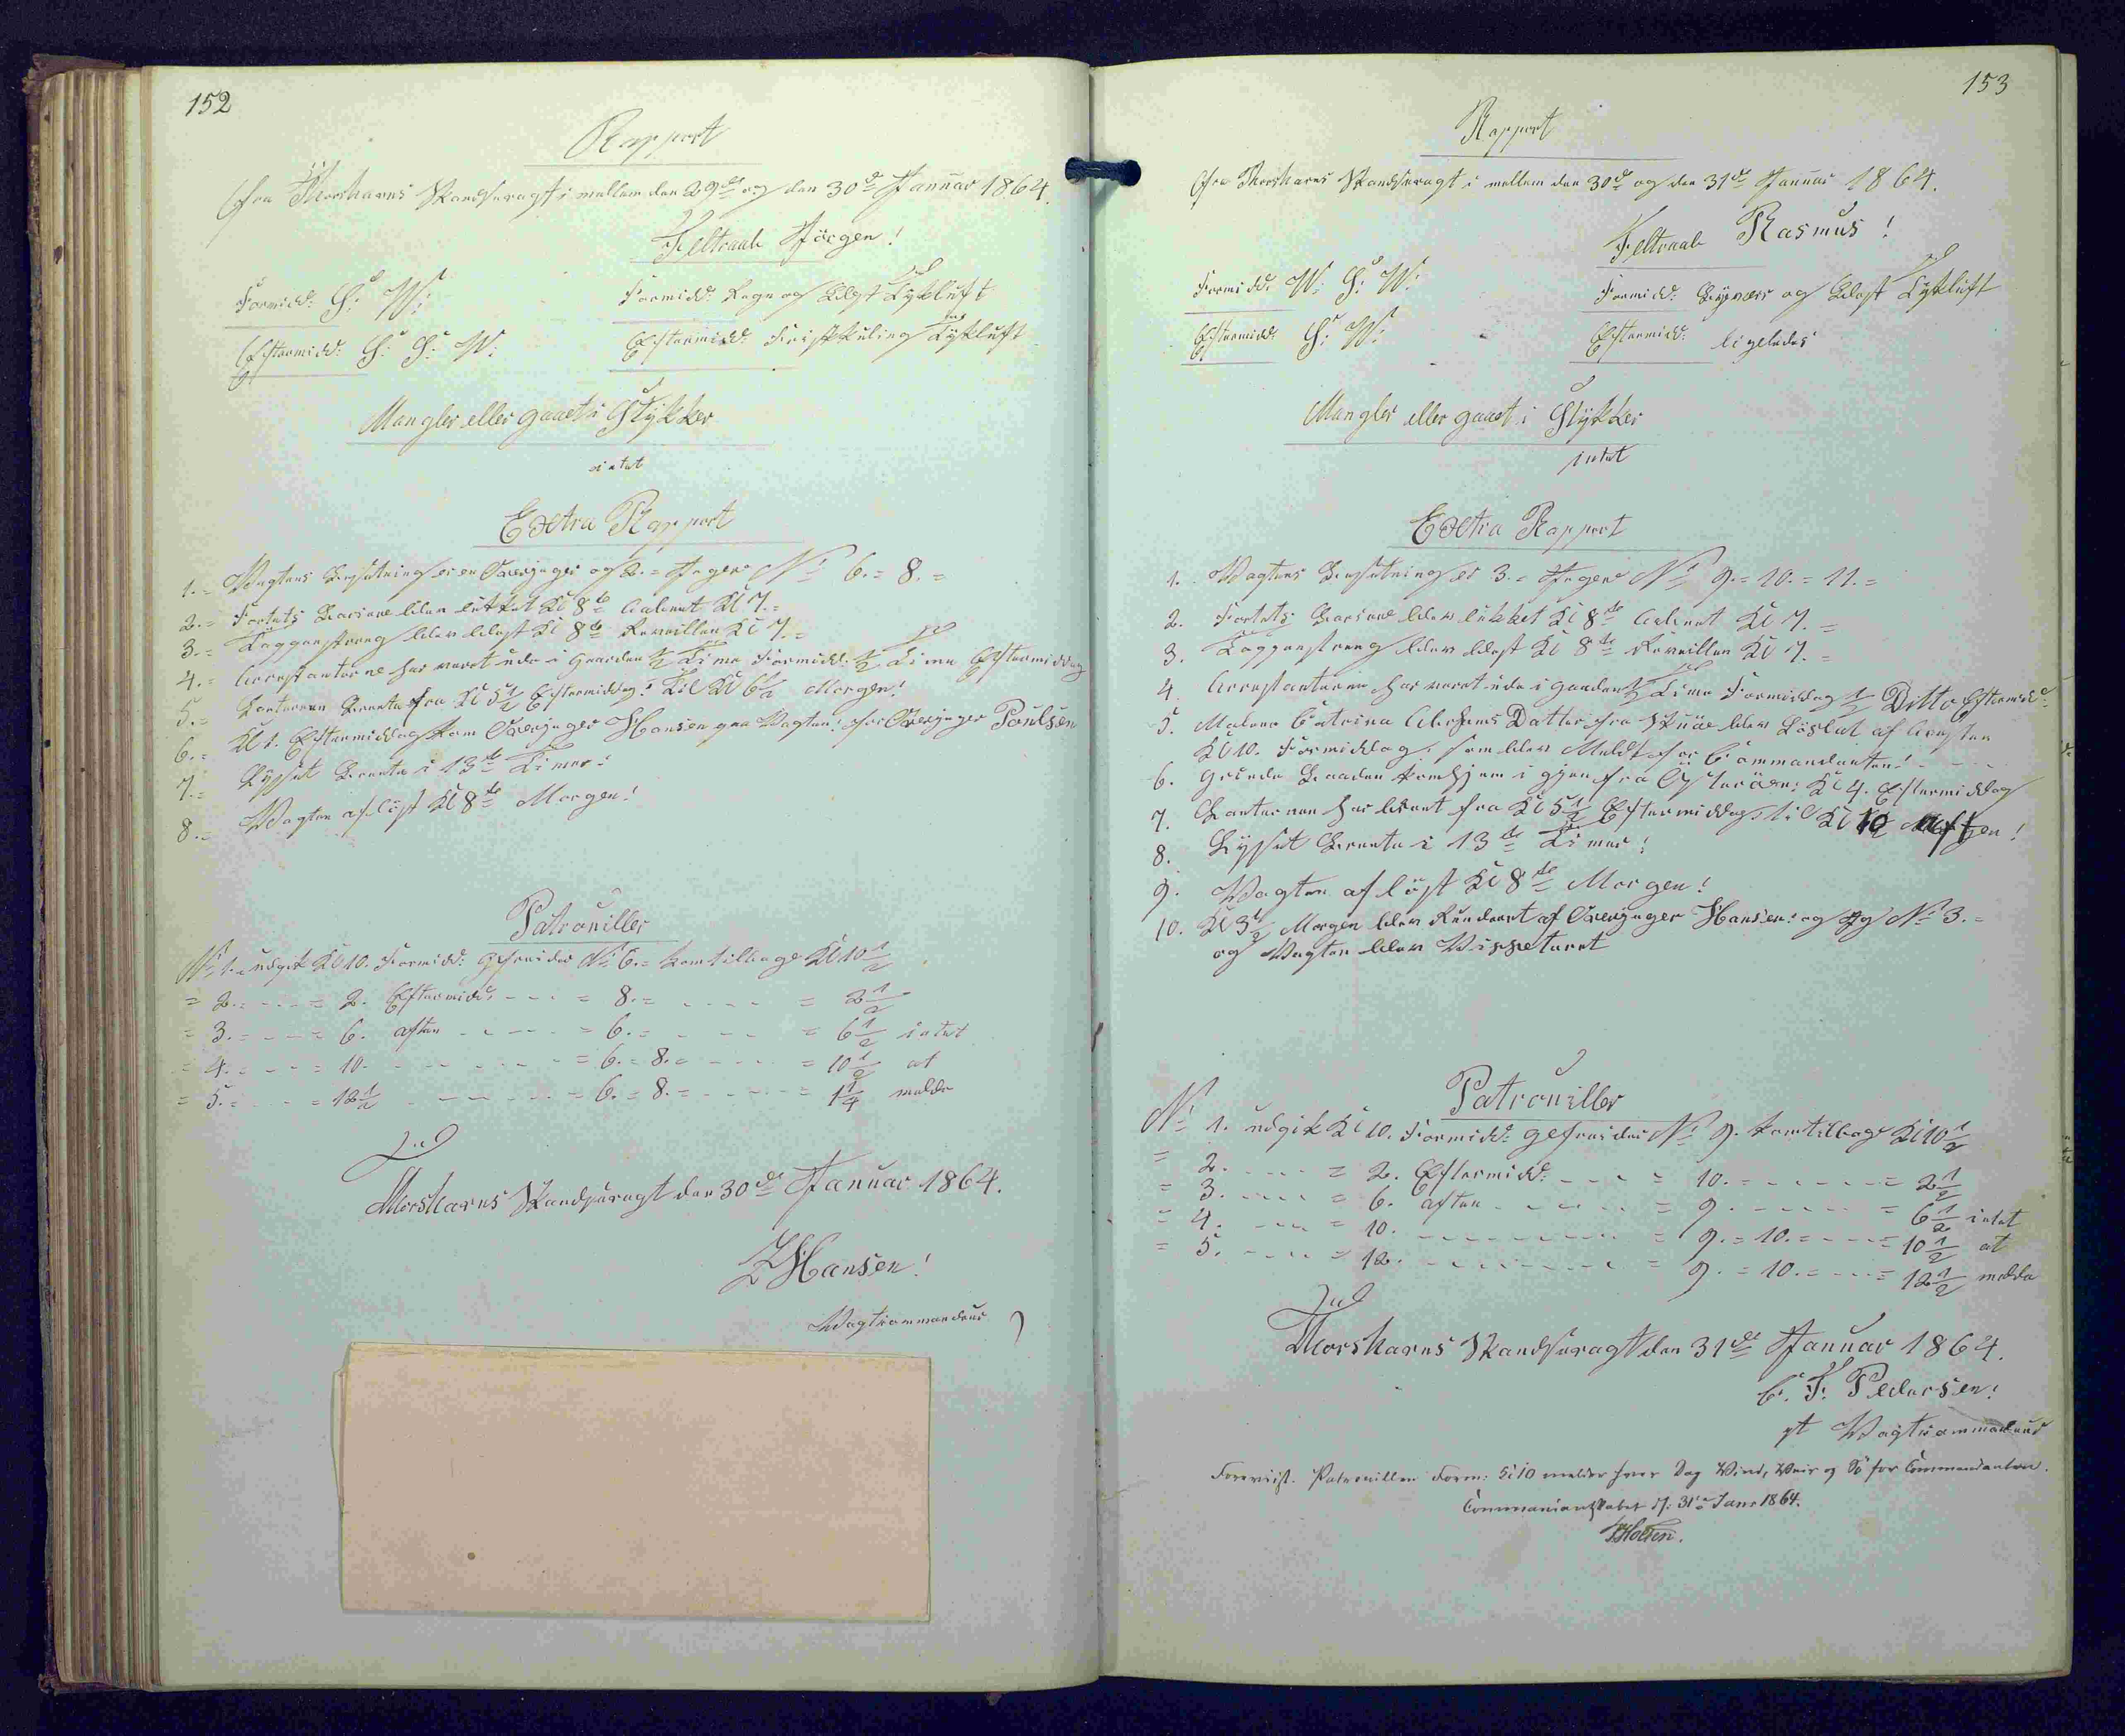 152
Rapport
fra Thorshavns Skandsevagt i mellem den 29de og den 30te Januar 1864.
Feltraab Jörgen!
Formidd: S: W:
Formidd: Regn og Blæst Tykluft
Eftermidd: S: S: W:
Eftermidd: Frisk Kuling Tykluft
Mangler eller gaaet i Stÿkker
intet
Extra Rapport
1. = Vagtens Besætning er en Overjæger og 2. = Jægere No 6. = 8. =
2. = Fortets Barriere blev lukket Kl 8te aabnet Kl 7. =
3. = Tappenstreng blev blæst Kl 8te Reveillen Kl 7. =
4. = Arrestanterne har været ude i Gaarden 1/2 Time Formidd: 1/2 Time Eftermiddag
5. = Lanternen Brændte fra Kl 5 1/2 Eftermiddag: Til Kl 6 1/2 Morgen!
6. = Kl 1. Eftermiddag kom Overjæger Hansen paa Vagten! for Overjæger Poulsen
7. = Lyset Brændte i 13te Timer!
8. = Vagten aflöst Kl 8te Morgen!
Patrouiller
No 1. udgik Kl 10. Formidd: Gefreider No 6. = kom tilbage Kl 10 1/2
= 2. = - - - = 2. Eftermidd: - - - = 8. = - - - - = 2 1/2
= 3. = - - - = 6. aften - - - - = 6. = - - - - = 6 1/2 intet
= 4. = - - - = 10. - - - - - - = 6. = 8. = - - - - = 10 1/2 at
= 5. = - - - = 12 1/2 - - - - - - = 6. = 8. = - - - - = 1 1/4 melde
Thorshavns Skandsevagt den 30te Januar 1864.
Hansen!
Vagtcommandeur
153
Rapport
fra Thorshavns Skandsevagt i mellem den 30te og den 31te Januar 1864.
Feltraab Rasmus!
Formidd: W: S: W:
Formidd: og Blæst Tykluft
Eftermidd: S: W:
Eftermidd: ligeledes
Mangler eller gaaet i Stÿkker
intet
Extra Rapport
1. Vagtens Besætning er 3. = Jægere No 9. = 10. = 11. =
2. Fortets Barriere blev lukket Kl 8te aabnet Kl 7. =
3. Tappenstreng blev blæst Kl 8te Reveillen Kl 7. =
4. Arrestanterne har været ude i Gaarden 1/2 Time Formiddag 1/2 Ditto Eftermidd:
5. Malene Catrina Datter fra blev Löslat af Aresten
Kl 10. Formiddag: som blev Meldt for Commandanten!
6. Grönde Baaden kom hjem i gjen fra Österöen: Kl 4. Eftermiddag
7. Lanternen har brænt fra Kl 5 1/2 Eftermiddag: til Kl 10 aften!
8. Lyset Brændte i 13te Timer!
9. Vagten aflöst Kl 8te Morgen!
10. Kl 3 1/2 Morgen blev Runderet af Overjæger Hansen: og No 3. =
og Vagten blev Visseteret
Patrouiller
No 1. udgik Kl 10. Formidd: gefreider No 9. kom tilbage Kl 10 1/2
= 2. - - - = 2. Eftermidd: - - - = 10. = - - - - = 2 1/2
= 3. - - - = 6. aften - - - - = 9. - - - - = 6 1/2 intet
= 4. - - - = 10. - - - - - - = 9. = 10. = - - - = 10 1/2 at
= 5. - - - = 12. - - - - - - = 9. = 10. = - - - = 12 1/2 melde
Thorshavns Skandsevagt den 31te Januar 1864.
C. F. Pedersen!
pt Vagtcommandeur
Foreviist. Patrouillen Form: Kl 10 melder hver Dag Wind, Veir og Sö for Commandanten.
Commandantskabet d: 31te Janr 1864.